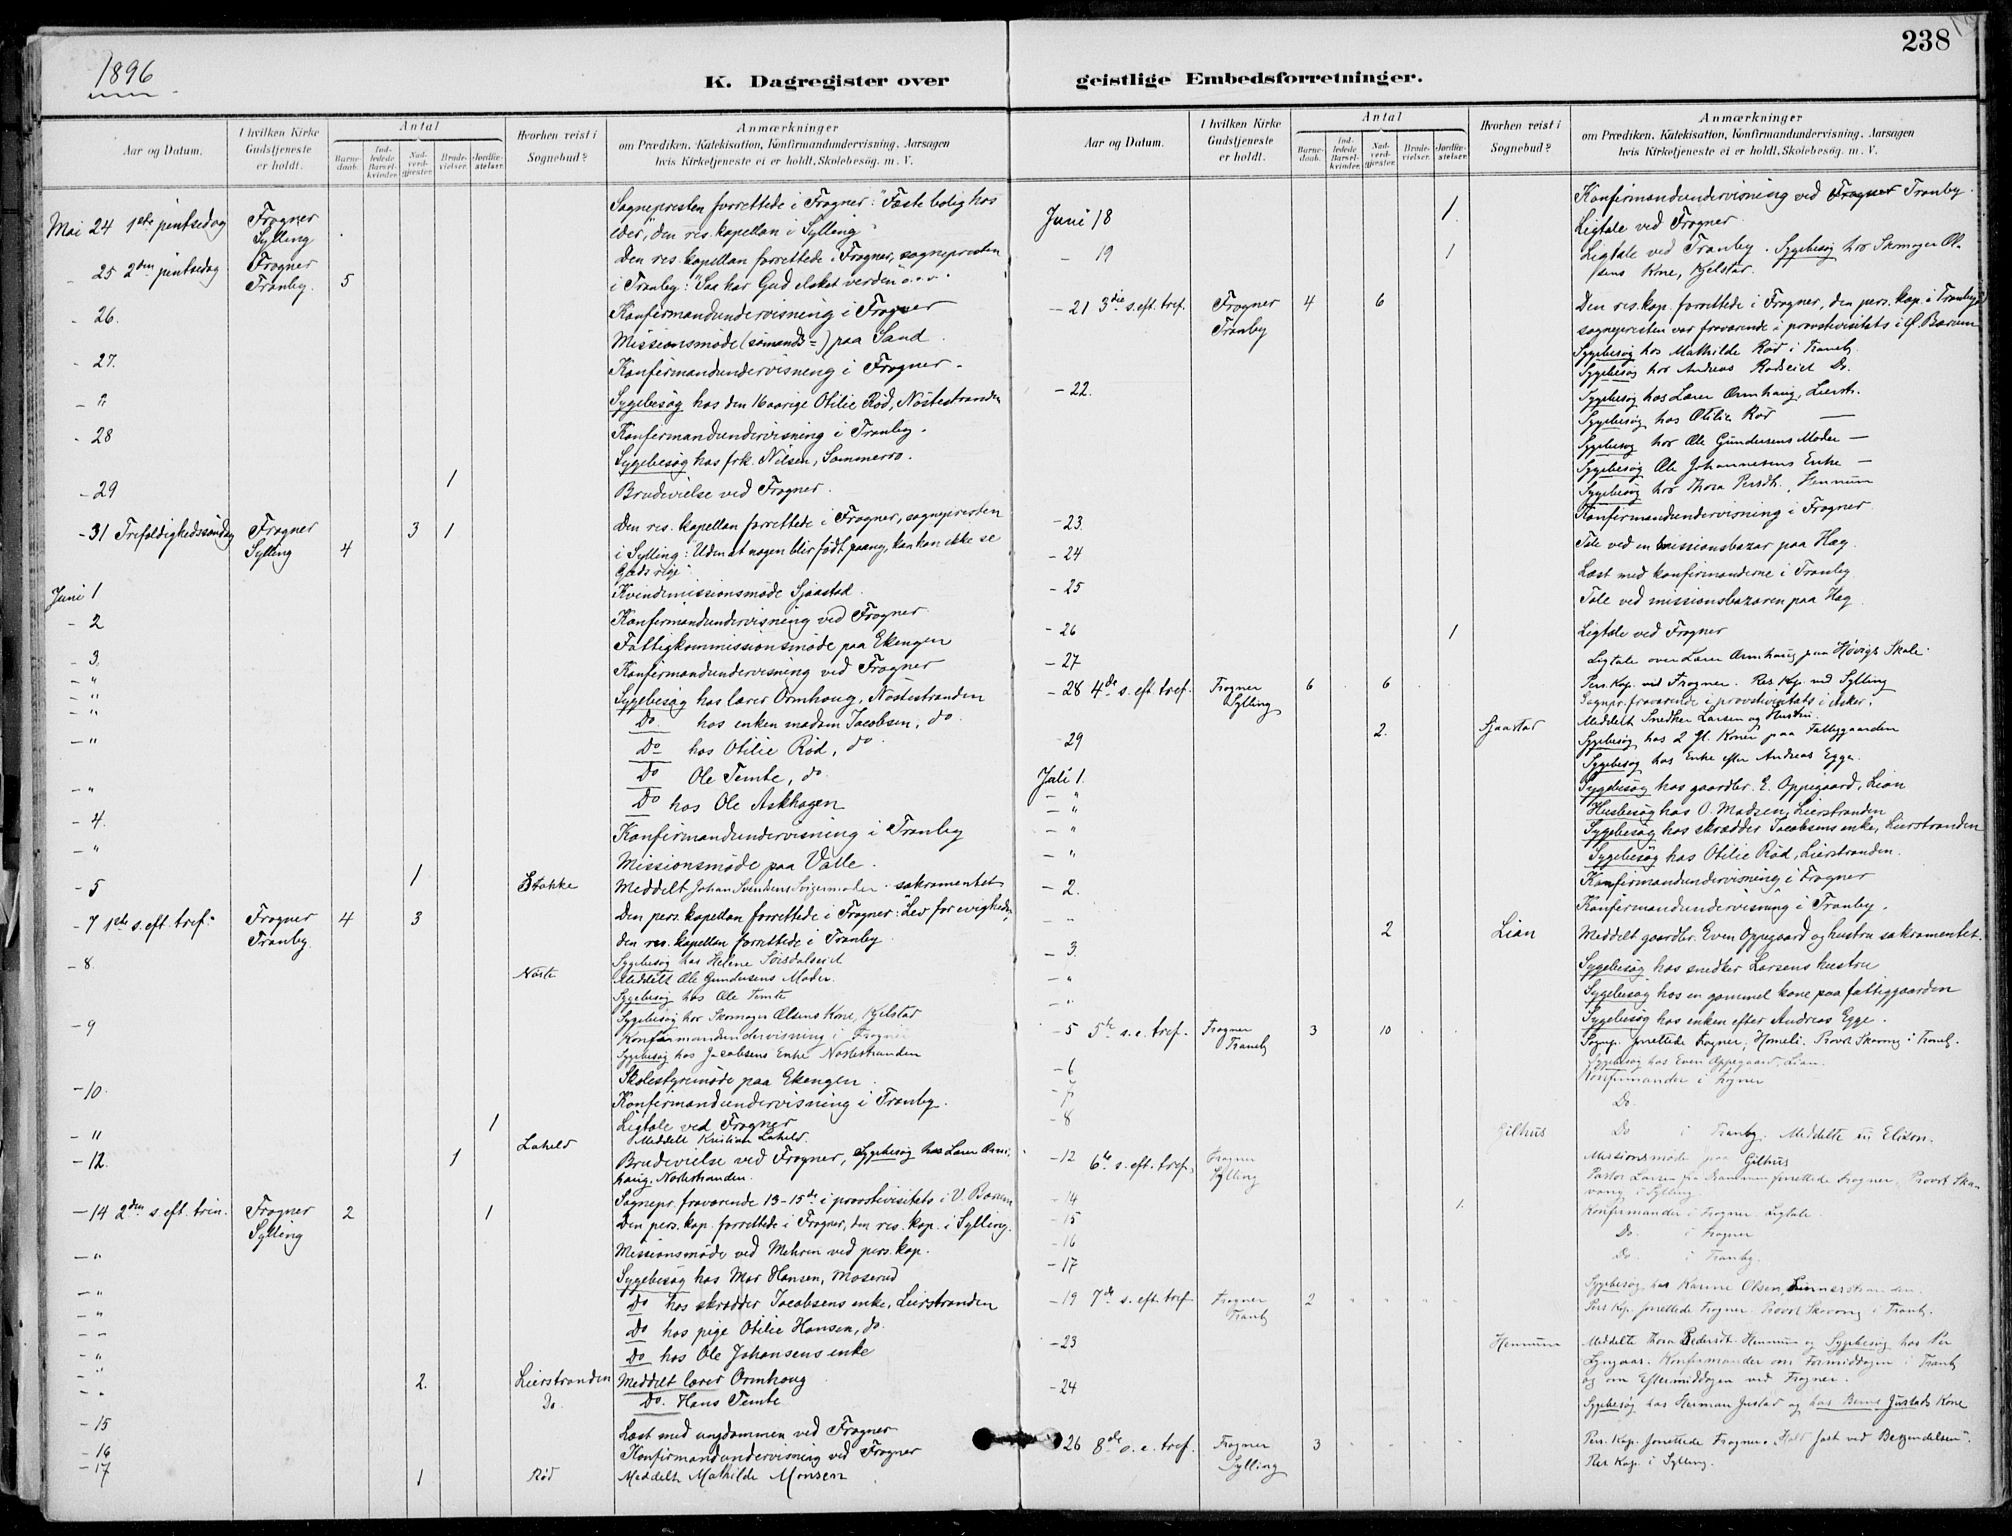 1896
238
K. Dagregister over geistlige Embedsforretninger.
Aar og Datum.
I hvilken Kirke Gudstjeneste er holdt.
Antal
Barnedaab.
Indledede Barselkvinder.
Nadverdgjester.
Brudevielser.
Jordfæstelser.
Hvorhen reist i Sognebud?
Anmærkninger
om Prædiken, Katekisation, Konfirmandundervisning, Aarsagen
hvis Kirketjeneste ei er holdt, Skolebesøg. m. V.
Mai 24 1ste pintsedag Frogner Sognepresten forrettede i Frogner: "Faste bolig hos
Sylling eder", den res. kapellan i Sylling
25 2den pintsedag Frogner Den res. kapellan forrettede i Frogner, sognepresten
Tranby. 5 i Tranby: "Saa har Gud elsket verden o.s.v.
- 26. Konfirmandundervisning i Frogner
Missionsmøde (sømands=) paa Sand.
- 27. Konfirmandundervisning i Frogner.
- " Sygebesøg hos den 16 aarige Otilie Rød, Nøstestranden
- 28 Konfirmandundervisning i Tranby.
Sygebesøg hos frk. Nilsen, Sommerro.
- 29 1 Brudevielse ved Frogner.
- 31 Trefoldighedssøndag Frogner 3 1 Den res. kapellan forrettede i Frogner, sognepresten
Sylling 4 i Sylling: "Uden at nogen blir født paany, kan han ikke se
Guds rige"
Juni 1 Kvindemissionsmøde Sjaastad.
- 2 Konfirmandundervisning ved Frogner
Fattigkommissionsmøde paa Ekengen
- 3. Konfirmandundervisning ved Frogner
- " Sygebesøg hos lærer Ormhoug, Nøstestranden
- " Do hos enken madam Jacobsen, do.
- " Do hos Otilie Rød, do
- " Do Ole Temte, do.
- " Do hos Ole Askhagen
- 4. Konfirmandundervisning i Tranby
- " Missionsmøde paa Valle.
- 5 1 Stokke Meddelt Johan Svendsens Svigermoder sakramentet
- 7 1ste s. eft. tref. Frogner 4 3 Den pers. kapellan forrettede i Frogner: "Lev for evigheden
Tranby. den res. kapellan forrettede i Tranby.
- 8. Sygebesøg hos Helene
Nøste Meddelt Ole Gundersens Moder.
Sygebesøg hos Ole Temte
- 9 Sygebesøg hos Skomager Olsens Kone, Kjelstad
Konfirmandundervisning i Frogner
Sygebesøg hos Jacobsens Enke Nøstestranden
- 10. Skolestyremøde paa Ekengen.
Konfirmandundervisning i Tranby.
- " 1 Ligtale ved Frogner
Laheld Meddelt Kristian Laheld.
- 12. 1 Brudevielse ved Frogner, Sygebesøg hos Lærer Orm-
haug, Nøstestranden.
Sognepr. fraværende 13-15de i provstivisitats i V. Bærum
- 14 2den s. eft. trin. Frogner 2 1 Den pers. kap. forrettede i Frogner, den res. kap. i Sylling.
Sylling
- " Missionsmøde ved Mehren ved pers. kap.
Sygebesøg hos Mar Hansen, Moserud
- " Do hos skrædder Jacobsens enke, Lierstranden
- " Do hos pige Otilie Hansen, do.
- " Do hos Ole Johansens enke
- " 2. Lierstranden Meddelt lærer Ormhoug
- " Do. Do. Hans Temte
- 15 Læst med ungdommen ved Frogner
- 16 Konfirmandundervisning ved Frogner
- 17 1 Rød Meddelt Mathilde Monsen
Aar og Datum.
I hvilken Kirke Gudstjeneste er holdt.
Antal
Barnedaab.
Indledede Barselkvinder.
Nadverdgjester.
Brudevielser.
Jordfæstelser.
Hvorhen reist i Sognebud?
Anmærkninger
om Prædiken, Katekisation, Konfirmandundervisning, Aarsagen
hvis Kirketjeneste ei er holdt, Skolebesøg. m. V.
Konfirmandundervisning ved Frogner Tranby.
Juni 18 1 Ligtale ved Frogner
- 19 1 Ligtale ved Tranby. Sygebesøg hos Skomager Ol-
sens Kone, Kjelstad.
- 21 3die s. eft. tref. Frogner 4 6 Den res. kap. forrettede i Frogner, den pers. kap. i Tranby
Tranby sognepresten var fraværende i provstivisitats i Ø. Bærum
Sygebesøg hos Mathilde Rød i Tranby.
Sygebesøg hos Andreas Rødseiet Do.
- 22. Sygebesøg hos Lærer Ormhaug, Lierstr.
Sygebesøg hos Otilie Rød —
Sygebesøg hos Ole Gundersens Moder —
Sygebesøg Ole Johannesens Enke —
Sygebesøg hos Thora Persdt., Hennum
- 23. Konfirmandundervisning i Frogner.
- 24 Tale ved en missionsbazar paa Hæg.
- 25 Læst med konfirmanderne i Tranby
Tale ved missionsbazaren paa Hæg.
- 26 1 Ligtale ved Frogner
- 27 Ligtale over Lærer Ormhaug paa Høvigs Skole.
- 28 4de s. eft. tref. Frogner 6 6 Pers. Kap. ved Frogner. Res. Kap. ved Sylling
Sylling Sognepr. fraværende i provstivisitats i Asker.
2. Sjaastad Meddelt Snedker Larsen og Hustru.
- 29 Sygebesøg hos 2 gl. Koner paa Fattiggaarden
Sygebesøg hos Enke efter Andreas Egge.
Juli 1. Sygebesøg hos gaardbr. E. Oppegaard, Lian
- " Husbesøg hos O. Madsen, Lierstranden
- " Sygebesøg hos skrædder Jacobsens enke, Lierstranden
- " Sygebesøg hos Otilie Rød, Lierstranden.
- 2. Konfirmandundervisning i Frogner
- " Konfirmandundervisning i Tranby.
- 3. 2 Lian Meddelt gaardbr. Even Oppegaard og hustru sakramentet.
Sygebesøg hos snedker Larsens hustru
- " Sygebesøg hos en gammel kone paa fattiggaarden
- " Sygebesøg hos enken efter Andreas Egge.
- 5 5te s. e. tref. Frogner 3 10 Sognep. forrettede Frogner, Homeli. Provst Skavang i Tranby.
Tranby
- 6 Sygebesøg hos Even Oppegaard, Lian.
- 7 Konfirmander i Frogner
- 8 Do.
Gilhus Do i Tranby. Meddelte
Missionsmøde paa Gilhus
- 12 6te s. eft. tref. Frogner Pastor Larsen fra Drammen forrettede Frogner, Provst Ska-
Sylling vang i Sylling
- 14 1. Konfirmander i Frogner. Ligtale.
- 15 Do. i Frogner
- 16 Do. i Tranby.
- 17
Sygebesøg hos Karine Olsen
- 19 7de s. eft. tref. Frogner 2 Pers Kap. forrettede Frogner. Provst Skavang i Tranby.
Tranby
- 23 Hennum Meddelte Thora Pedersdt. Hennum og Sygebesøg hos Per
Lyngaas. Konfirmander om Formiddagen i Tranby
- 24 og om Eftermiddagen ved Frogner.
Sygebesøg hos Herman Justad og hos Justads Kone
- 26 8de s. e. tref. Frogner 3 Pers. Kap. forrettede Frogner. "Hold fast ved Bekjendelsen".
Sylling Res Kap. i Sylling.